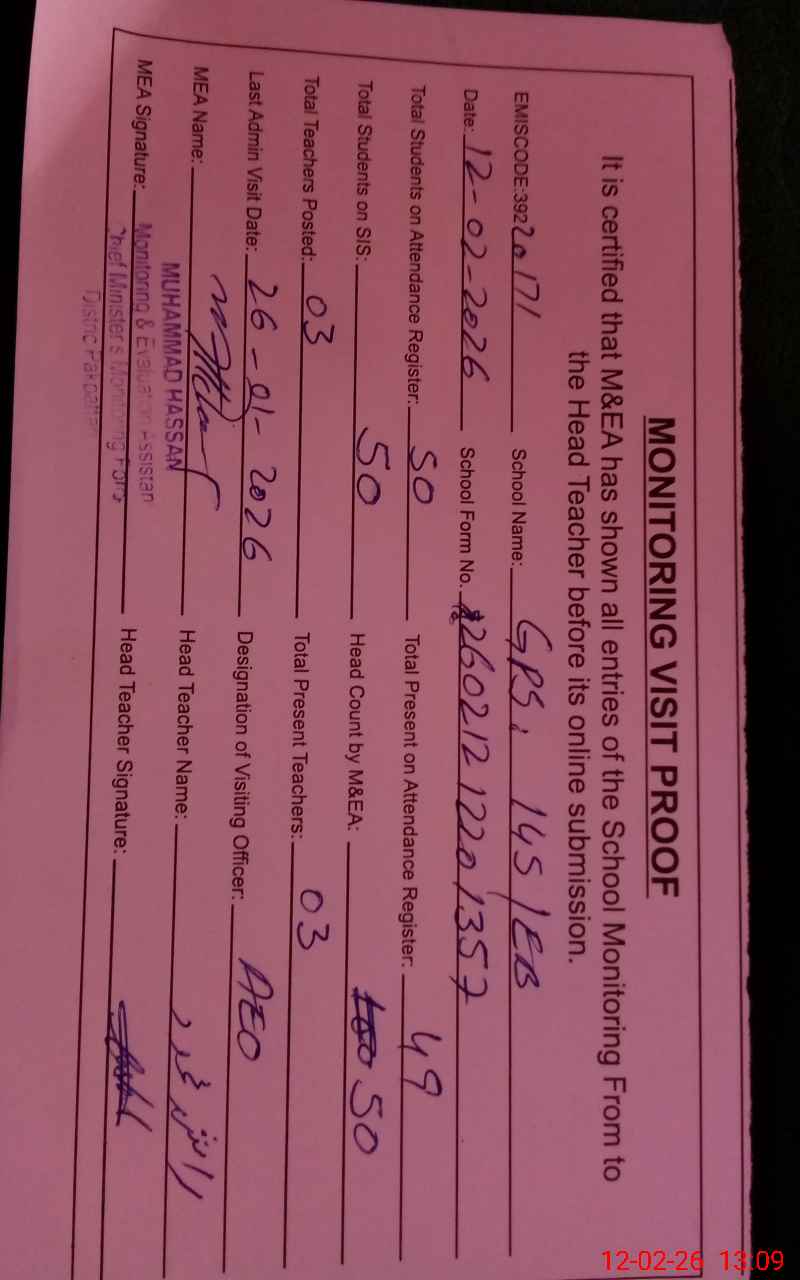 MONITORING VISIT PROOF
It is certified that M&EA has shown all entries of the School Monitoring From to
the Head Teacher before its online submission.
EMISCODE:39220171 School Name: GPS: 145/EB
Date: 12-02-2026 School Form No. 26021212201357
Total Students on Attendance Register: 50 Total Present on Attendance Register: 49
Total Students on SIS: 50 Head Count by M&EA: 50
Total Teachers Posted: 03 Total Present Teachers: 03
Last Admin Visit Date: 26-01-2026 Designation of Visiting Officer: AEO
MEA Name: Head Teacher Name:
MUHAMMAD HASSAN
MEA Signature: Monitoring & Evaluation Assistan Head Teacher Signature:
Chief Minister's Monitoring Forc
Distric Pakpattan
12-02-26 13:09